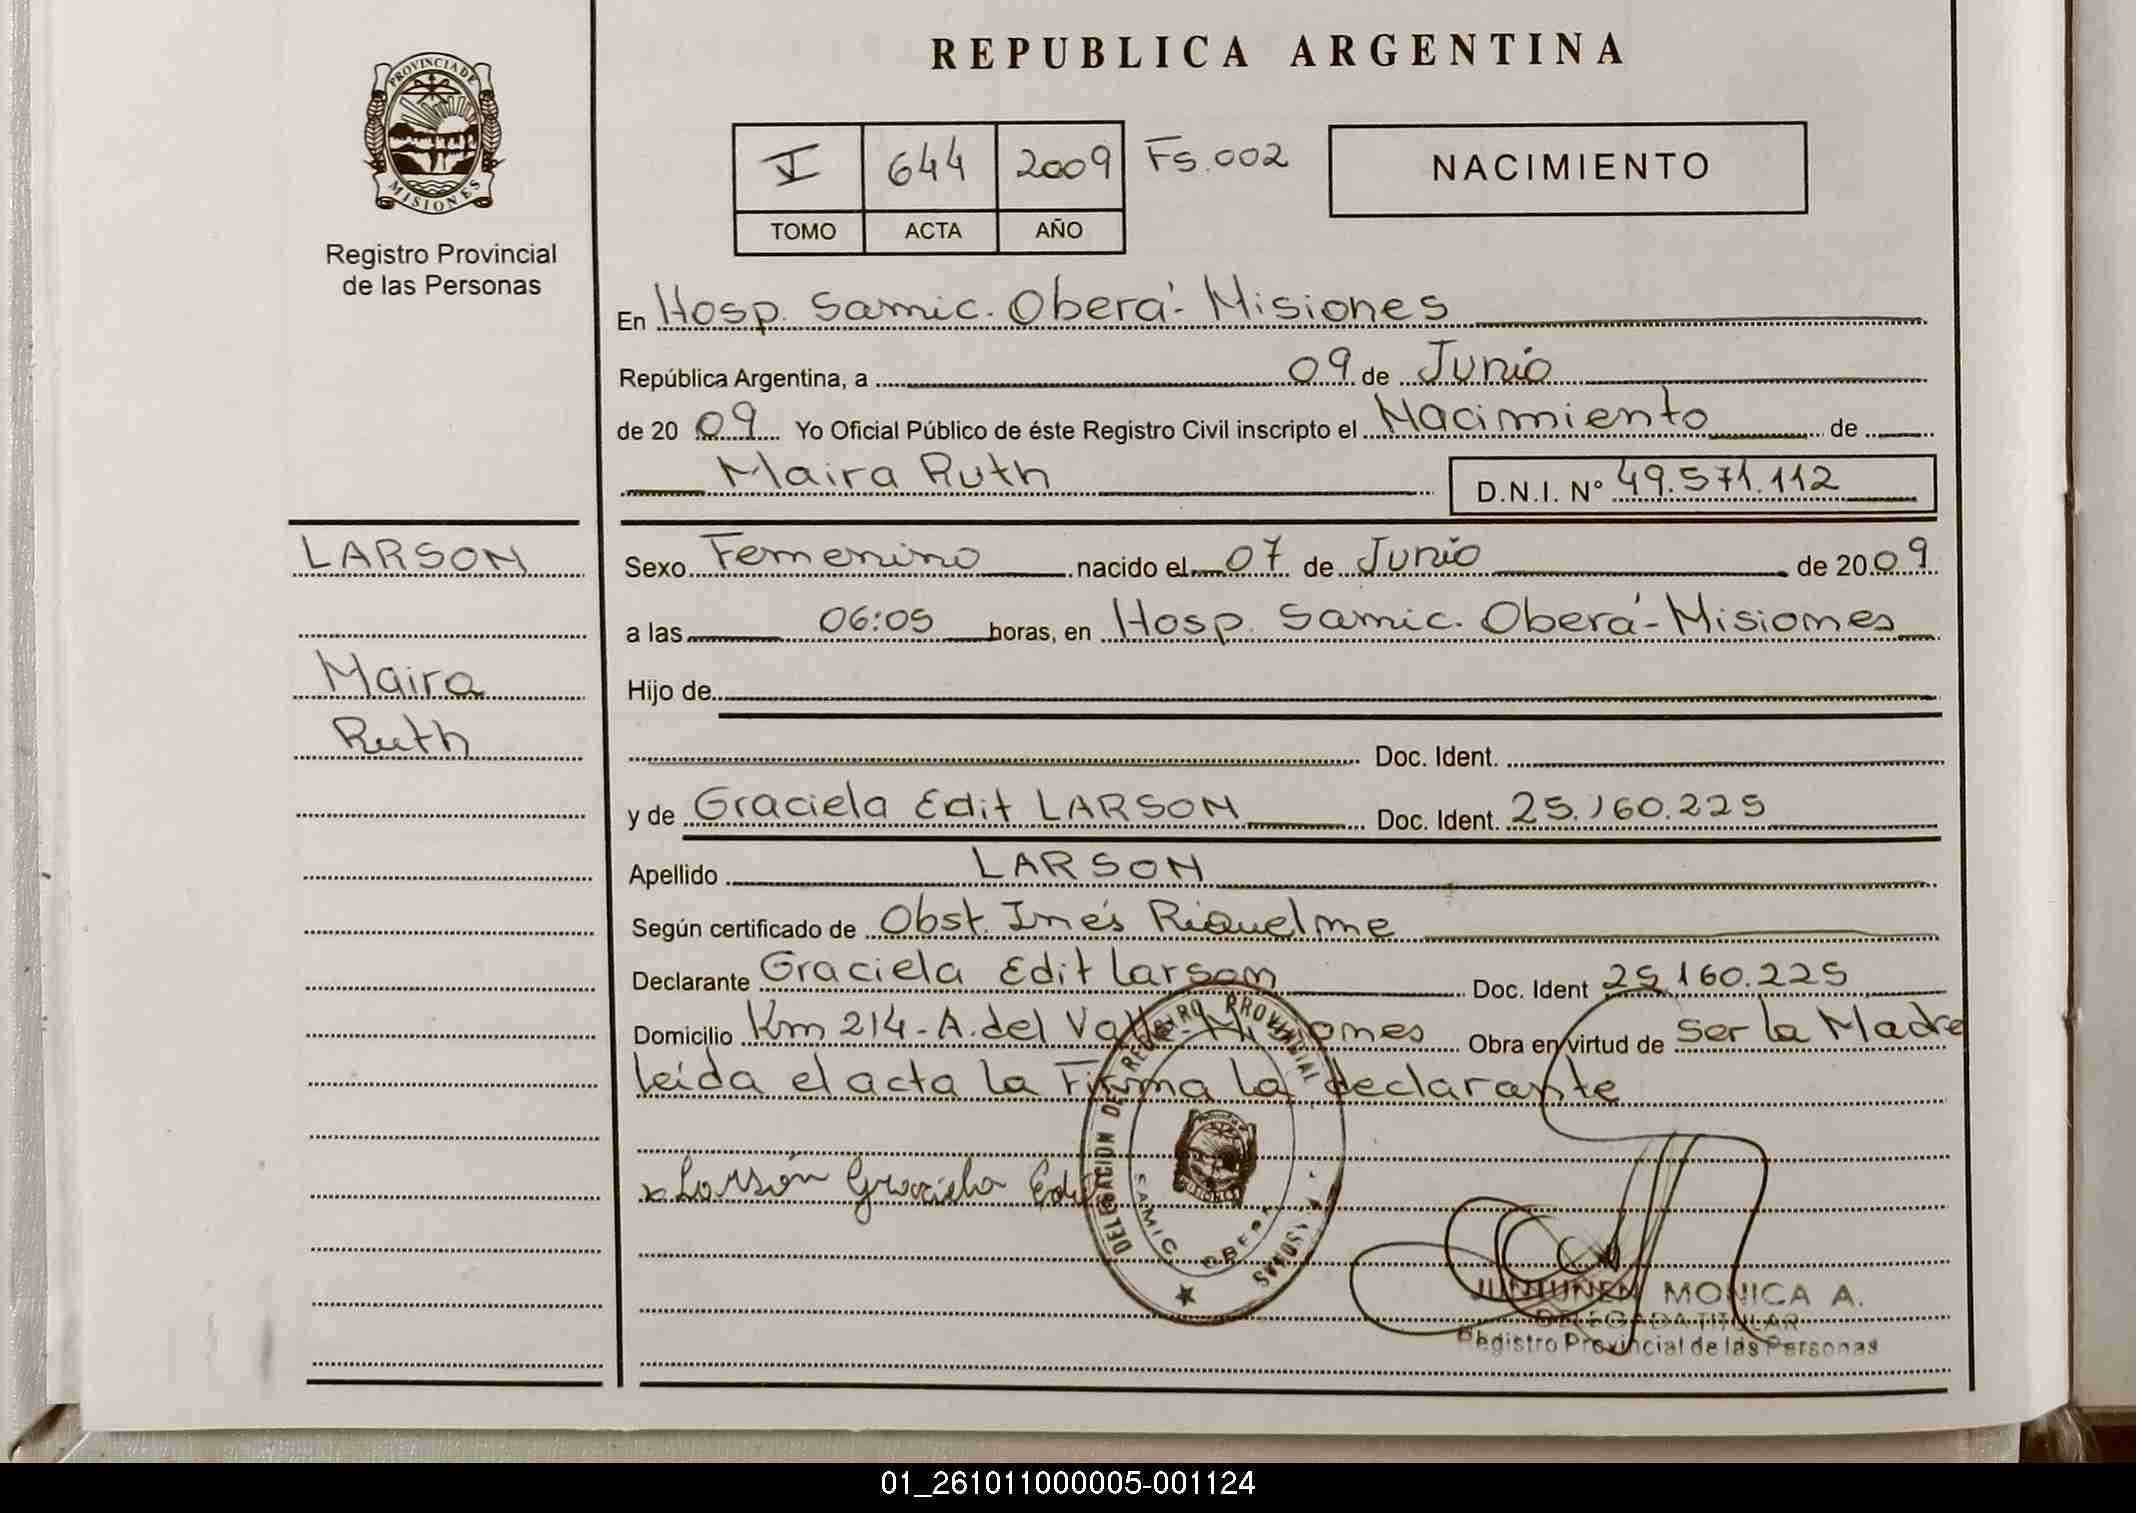 PROVINCIA DE
MISIONES
Registro Provincial
de las Personas
REPUBLICA ARGENTINA
V 644 2009 Fs.002
TOMO ACTA AÑO
NACIMIENTO
En Hosp. Samic. Oberá - Misiones
República Argentina, a 09 de Junio
de 2009 Yo Oficial Público de éste Registro Civil inscripto el Nacimiento de
Maira Ruth D.N.I. Nº 49.571.112
LARSON
Maira
Ruth
Sexo Femenino nacido el 07 de Junio de 2009
a las 06:05 horas, en Hosp. Samic. Oberá - Misiones
Hijo de
Doc. Ident.
y de Graciela Edit LARSON Doc. Ident. 25.160.225
Apellido LARSON
Según certificado de Obst. Inés Riquelme
Declarante Graciela Edit Larson Doc. Ident 25.160.225
Domicilio Km 214 - A. del Valle - Misiones Obra en virtud de Ser la Madre
leída el acta la Firma la declarante
x Larsón Graciela Edit
DELEGACION DEL REGISTRO PROVINCIAL
SAMIC OBERA
MISIONES
JUNTUNEN MONICA A.
DELEGADA TITULAR
Registro Provincial de las Personas
01_261011000005-001124